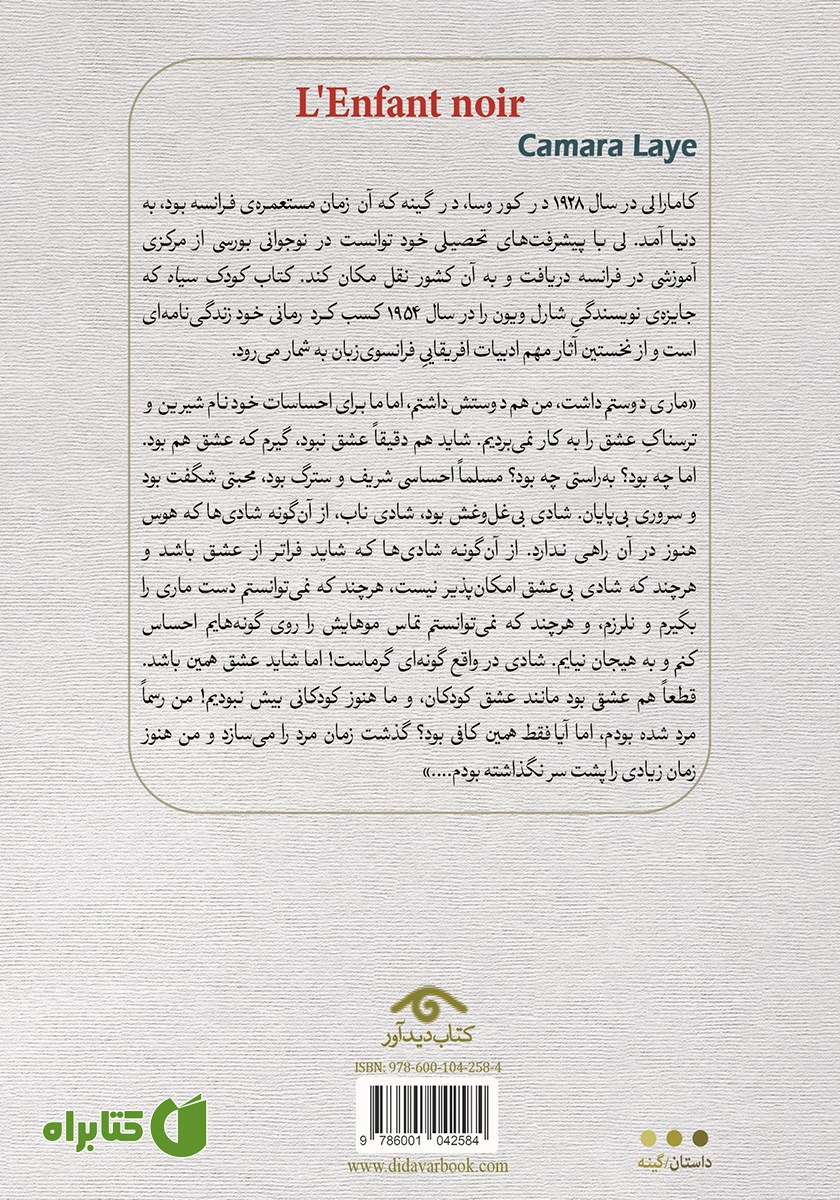 L'Enfant noir
Camara Laye
کامارا لی در سال ۱۹۲۸ در کوروسا، در گینه که آن زمان مستعمره‌ی فرانسه بود، به
دنیا آمد. لی با پیشرفت‌های تحصیلی خود توانست در نوجوانی بورسی از مرکزی
آموزشی در فرانسه دریافت و به آن کشور نقل مکان کند. کتاب کودک سیاه که
جایزه‌ی نویسندگیِ شارل ویون را در سال ۱۹۵۴ کسب کرد رمانی خود زندگی‌نامه‌ای
است و از نخستین آثار مهم ادبیات افریقاییِ فرانسوی‌زبان به شمار می‌رود.
«ماری دوستم داشت، من هم دوستش داشتم، اما ما برای احساسات خود نام شیرین و
ترسناکِ عشق را به کار نمی‌بردیم. شاید هم دقیقاً عشق نبود، گیرم که عشق هم بود.
اما چه بود؟ به‌راستی چه بود؟ مسلماً احساسی شریف و سترگ بود، محبتی شگفت بود
و سروری بی‌پایان. شادی بی‌غل‌وغش بود، شادی ناب، از آن‌گونه شادی‌ها که هوس
هنوز در آن راهی ندارد. از آن‌گونه شادی‌ها که شاید فراتر از عشق باشد و
هرچند که شادی بی‌عشق امکان‌پذیر نیست، هرچند که نمی‌توانستم دست ماری را
بگیرم و نلرزم، و هرچند که نمی‌توانستم تماس موهایش را روی گونه‌هایم احساس
کنم و به هیجان نیایم. شادی در واقع گونه‌ای گرماست! اما شاید عشق همین باشد.
قطعاً هم عشق بود مانند عشق کودکان، و ما هنوز کودکانی بیش نبودیم! من رسماً
مرد شده بودم، اما آیا فقط همین کافی بود؟ گذشت زمان مرد را می‌سازد و من هنوز
زمان زیادی را پشت سر نگذاشته بودم....»
کتاب دیدآور
ISBN: 978-600-104-258-4
9 786001 042584
www.didavarbook.com
کتابراه
داستان/گینه